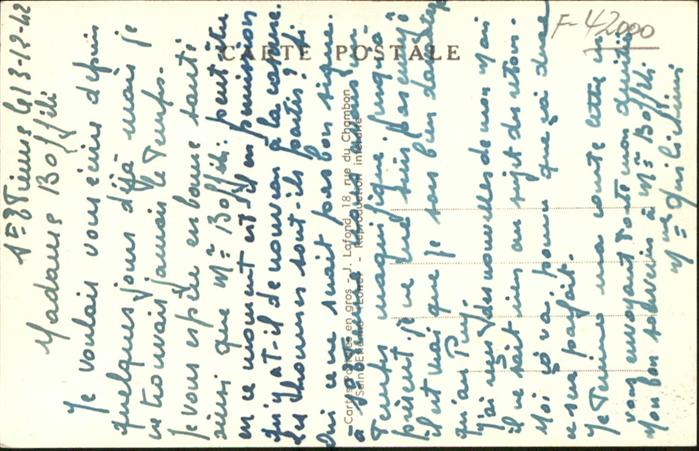 CARTE POSTALE
F-42000
Cartes postales en gros - J. Lafond, 18, rue du Chambon
Saint-Etienne (Loire) - Reproduction interdite
St Etienne le 13-12-42
Madame Boffili
Je voulais vous écrire depuis
quelques jours déjà mais je
ne trouvais jamais le temps.
Je vous espère en bonne santé
ainsi que Mr Boffili peut être
en ce moment est-il en permission
ou y a-t-il de nouveau à la caserne.
Les hommes sont-ils partis? Si
oui ce ne serait pas bon signe.
à
temps magnifique jusqu'à
présent je ne me suis pas ennuyé
il est vrai que je sors bien davantage
qu'au Puy.
J'ai reçu des nouvelles de mon mari
il ne sait rien au sujet du retour.
Moi ça va, pourvu que ça dure
ce sera parfait.
Je termine ma courte lettre en
vous envoyant toute mon amitié
Mon bon souvenir à Mr Boffili
Mme Quilichini